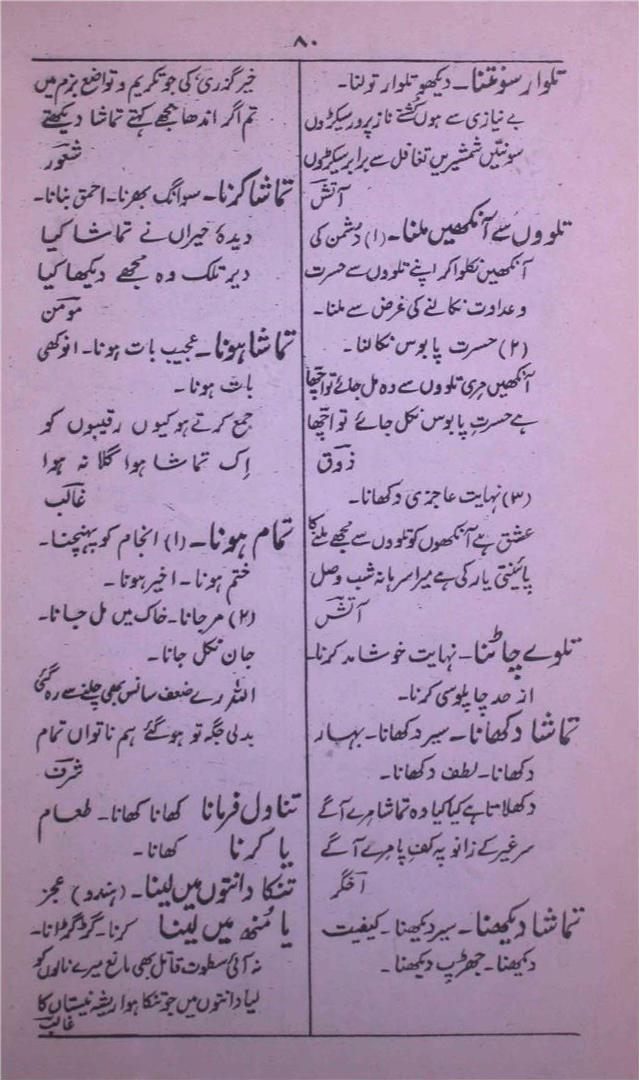 ۸۰
تلوار سونتنا۔ دیکھو تلوار تولنا۔
بے نیازی سے ہوں کشتے ناز پرور سیکڑوں
سونتیں شمشیریں تغافل سے برابر سیکڑوں
آتش
تلووں سے آنکھیں ملنا۔ (۱) دشمن کی
آنکھیں نکلوا کر اپنے تلووں سے حسرت
و عداوت نکالنے کی غرض سے ملنا۔
(۲) حسرت پابوس نکالنا۔
آنکھیں مری تلووں سے وہ مل جائے تو اچھا
ہے حسرتِ پابوس نکل جائے تو اچھا
ذوق
(۳) نہایت عاجزی دکھانا۔
عشق ہے آنکھوں کو تلووں سے مجھے ملنے کا
پائنتی یار کی ہے میرا سرہانہ شب وصل
آتش
تلوے چاٹنا۔ نہایت خوشامد کرنا۔
از حد چاپلوسی کرنا۔
تماشا دکھانا۔ سیر دکھانا۔ بہار
دکھانا۔ لطف دکھانا۔
دکھلاتا ہے کیا کیا وہ تماشا مرے آگے
سر غیر کے زانو پہ کفِ پا مرے آگے
افگر
تماشا دیکھنا۔ سیر دیکھنا۔ کیفیت
دیکھنا۔ جھڑپ دیکھنا۔
خیر گذری کی جو تکریم و تواضع بزم میں
تم اگر اندھا مجھے کہتے تماشا دیکھتے
شعور
تماشا کرنا۔ سوانگ بھرنا۔ احمق بنانا۔
دیدۂ حیراں نے تماشا کیا
دیر تلک وہ مجھے دیکھا کیا
مومن
تماشا ہونا۔ عجیب بات ہونا۔ انوکھی
بات ہونا۔
جمع کرتے ہو کیوں رقیبوں کو
اِک تماشا ہوا گلا نہ ہوا
غالب
تمام ہونا۔ (۱) انجام کو پہنچنا۔
ختم ہونا۔ اخیر ہونا۔
(۲) مر جانا۔ خاک میں مل جانا۔
جان نکل جانا۔
اللہ رے ضعف سانس بھی چلنے سے رہ گئی
بدلی جگہ تو ہو گئے ہم ناتواں تمام
شرف
تناول فرمانا کھانا کھانا۔ طعام
یا کرنا کھانا۔
تنکا دانتوں میں لینا۔ (ہندو) عجز
یا مُنھ میں لینا کرنا۔ گڑگڑانا۔
نہ آئی سطوت قاتل بھی مانع میرے نالوں کو
لیا دانتوں میں جو تنکا ہوا ریشہ نیستاں کا
غالب